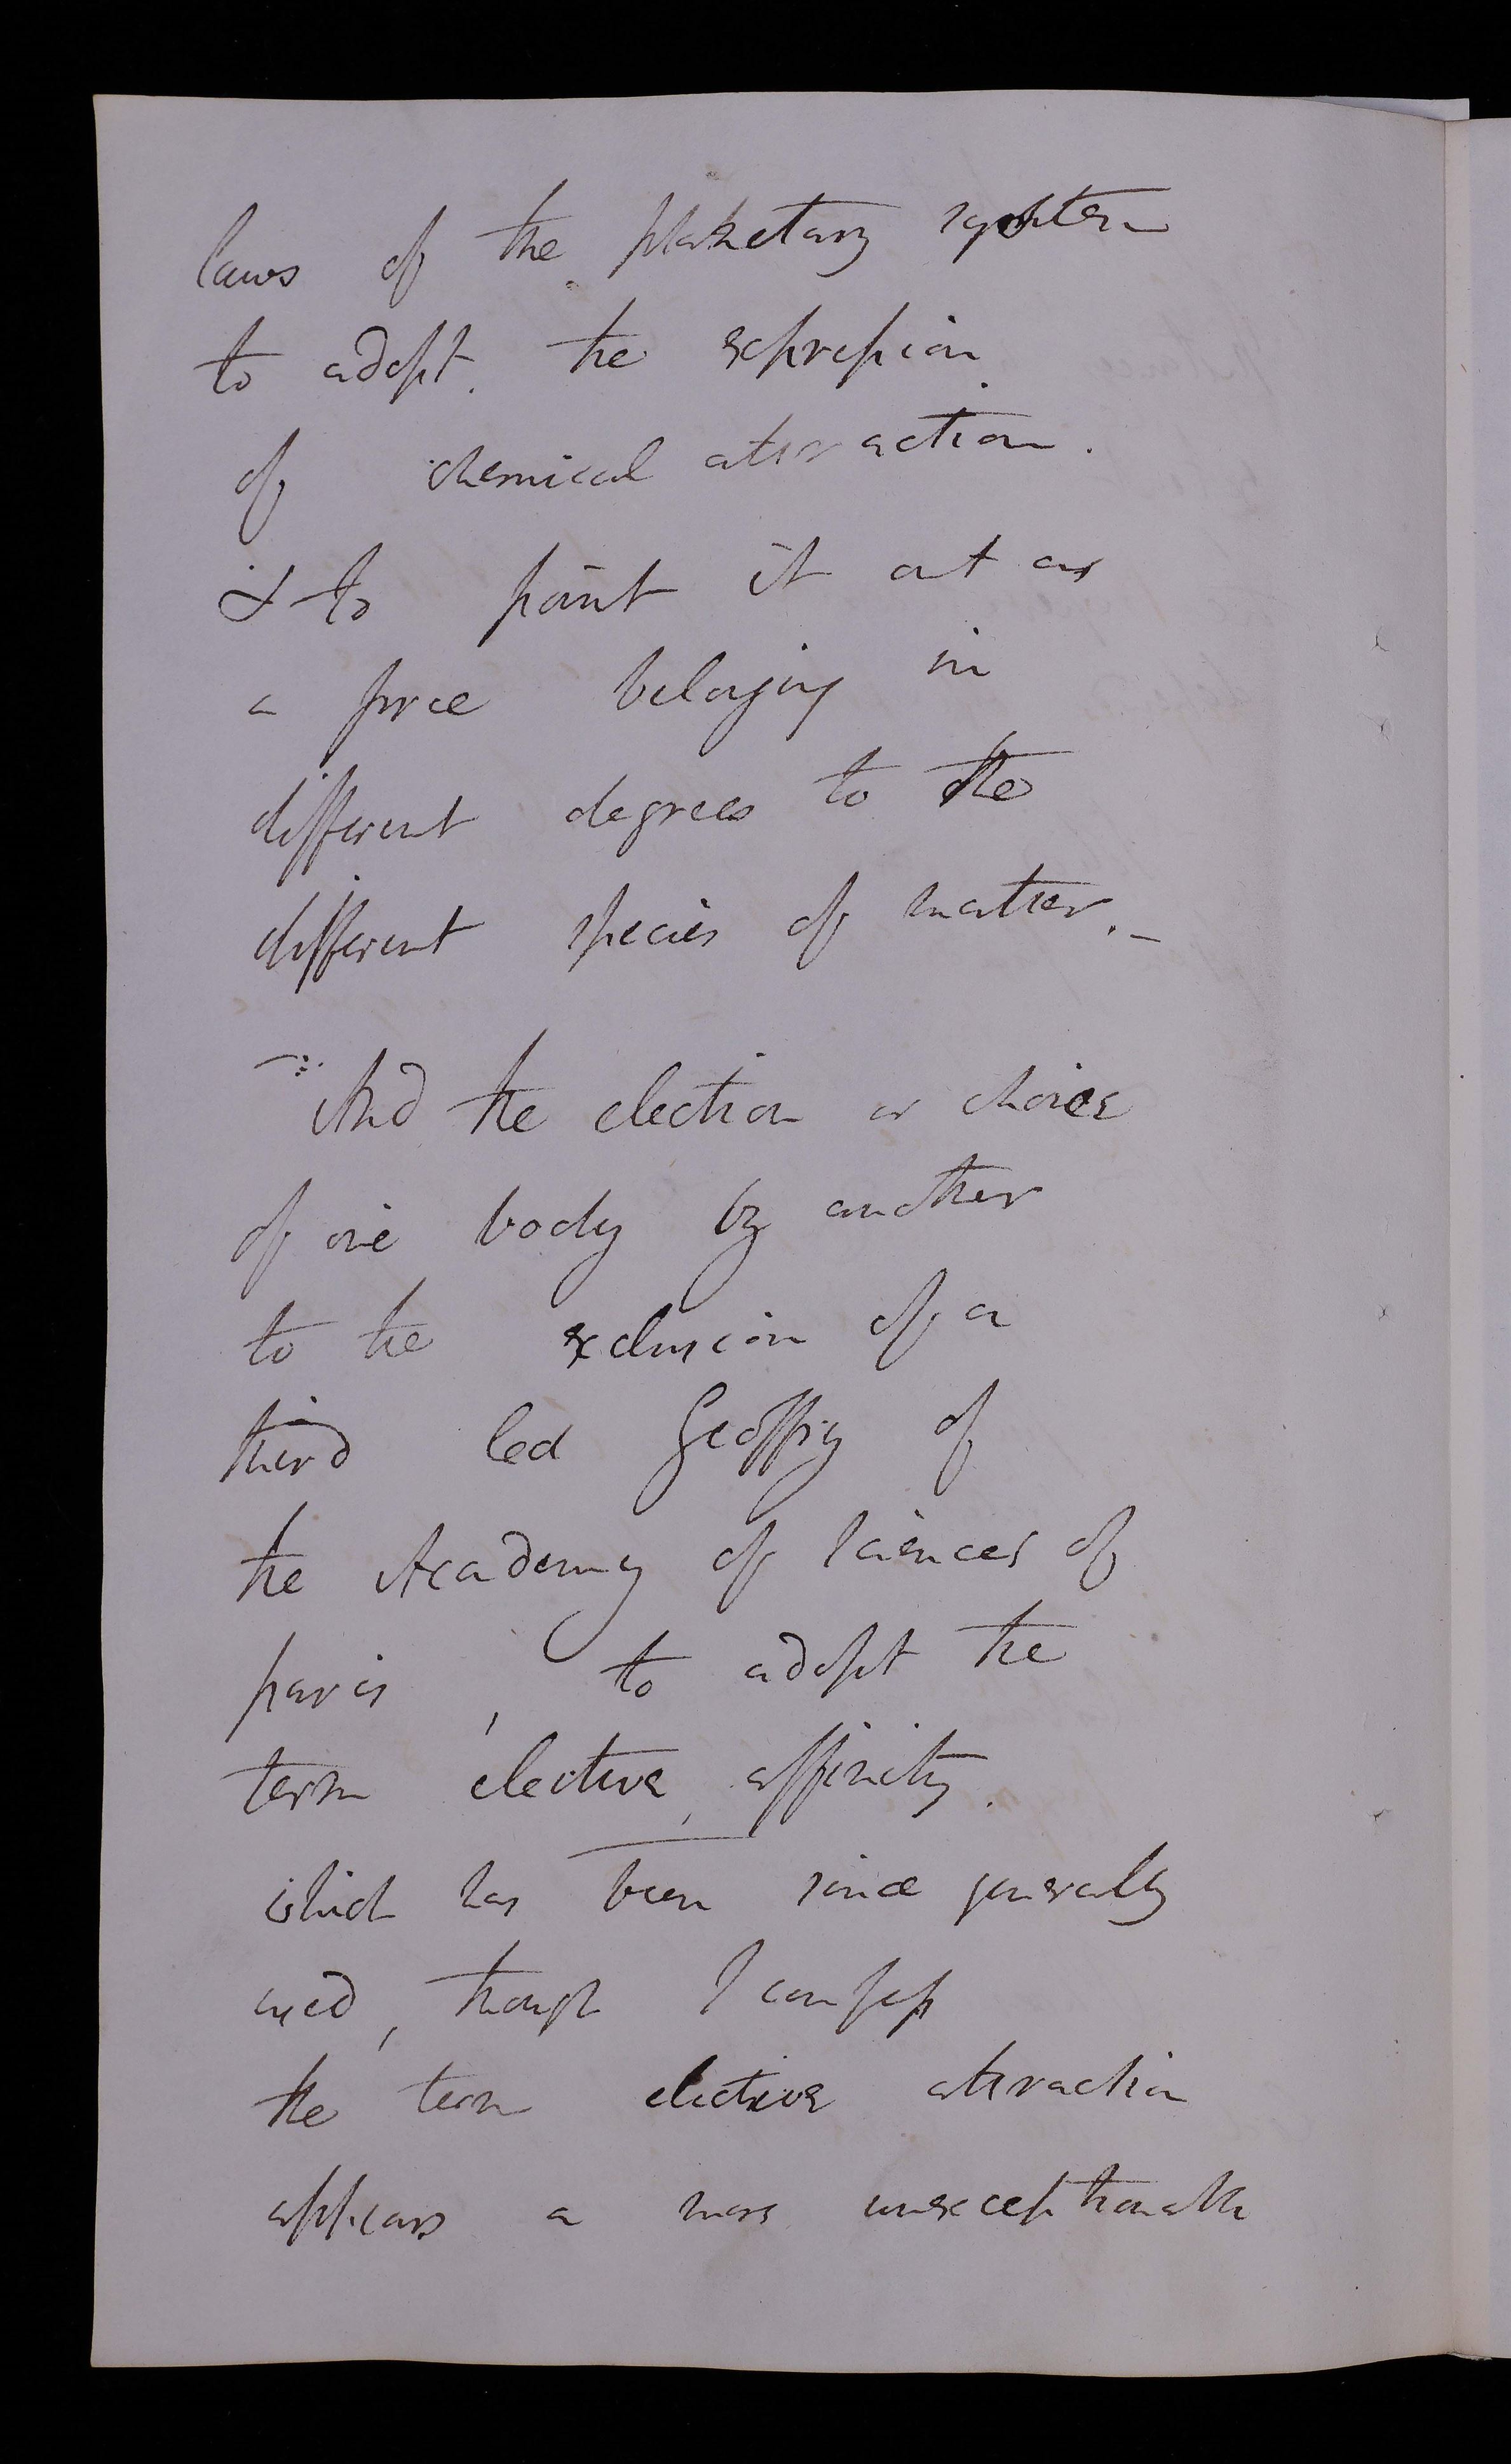 laws of the planetary system
to adopt. the expression
of chemical attraction.
& to point it out as
a force belonging in
different degrees to the
different species of matter. –
– And the election or choice
of one body by another
to the exclusion of a
third led Geoffroy of
the Academy of Sciences of
paris, to adopt the
term elective affinity.
which has been since generally
used, though I confess
the term elective attraction
appears a more unexceptionable